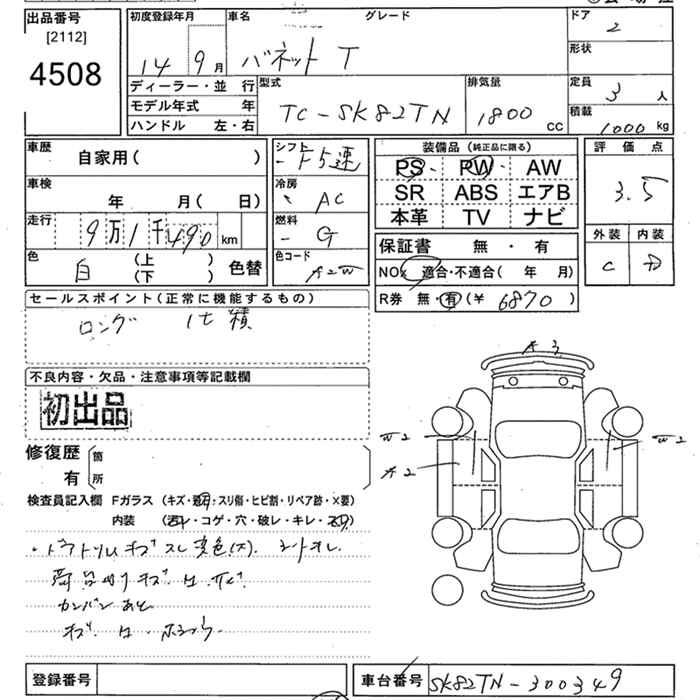 出品番号
[2112]
4508
初度登録年月
14 9月
車名 グレード
バネット T
ドア
2
形状
ディーラー・並 行
モデル年式 年
ハンドル 左・右
型式
TC-SK82TN
排気量
1800 cc
定員
3人
積載
1000kg
車歴
自家用( )
シフト
F5速
装備品(純正品に限る)
PS・PW・AW
SR ABS エアB
本革 TV ナビ
評価点
3.5
車検
年 月( 日)
冷房
AC
走行
9万1千490km
燃料
G
外装 内装
C D
色
白 (上 下) 色替
色コード
保証書 無・有
NOx 適合・不適合( 年 月)
R券 無・有(¥6870)
セールスポイント(正常に機能するもの)
ロング 1t積
不良内容・欠品・注意事項等記載欄
初出品
A3
W2
A2
W2
修復歴 箇所
有
検査員記入欄 Fガラス(キズ・・スリ傷・ヒビ割・リペア跡・×要)
内装(・コゲ・穴・破レ・キレ・)
キズ スレ 変色(大)
荷台回り キズ
カンバンあと
キズ
登録番号
車台番号 SK82TN-300349